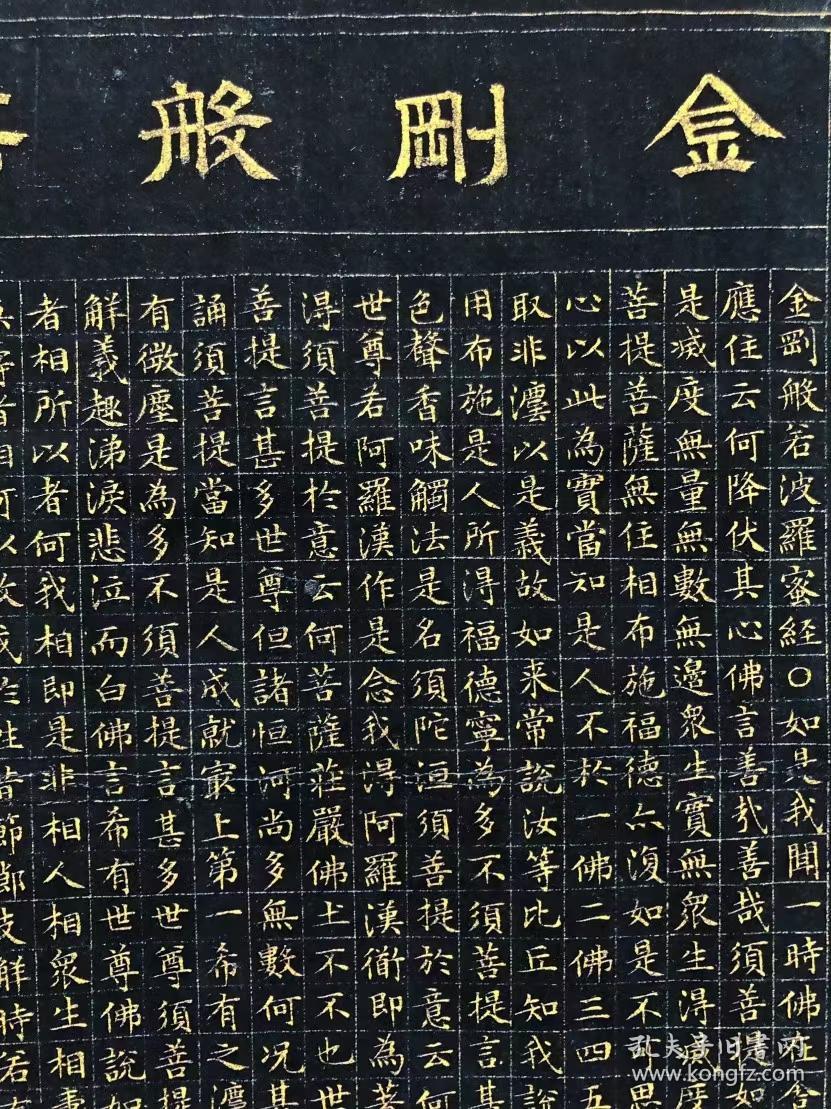 金剛般
金剛般若波羅蜜經〇如是我聞一時佛在舍
應住云何降伏其心佛言善哉善哉須菩
是滅度無量無數無邊眾生實無眾生得滅度
菩提菩薩無住相布施福德亦復如是不思
心以此為實當知是人不於一佛二佛三四五
取非灋以是義故如来常說汝等比丘知我說
用布施是人所得福德寧為多不須菩提言甚
色聲香味觸法是名須陀洹須菩提於意云何
世尊若阿羅漢作是念我得阿羅漢衜即為著
得須菩提於意云何菩薩莊嚴佛土不不也世
善提言甚多世尊但諸恒河尚多無數何况其
誦須菩提當知是人成就冣上第一希有之灋
有微塵是為多不須菩提言甚多世尊須菩提
解義趣涕淚悲泣而白佛言希有世尊佛說如
者相所以者何我相即是非相人相眾生相壽
節節支解時若有
孔夫子旧書网
www.kongfz.com